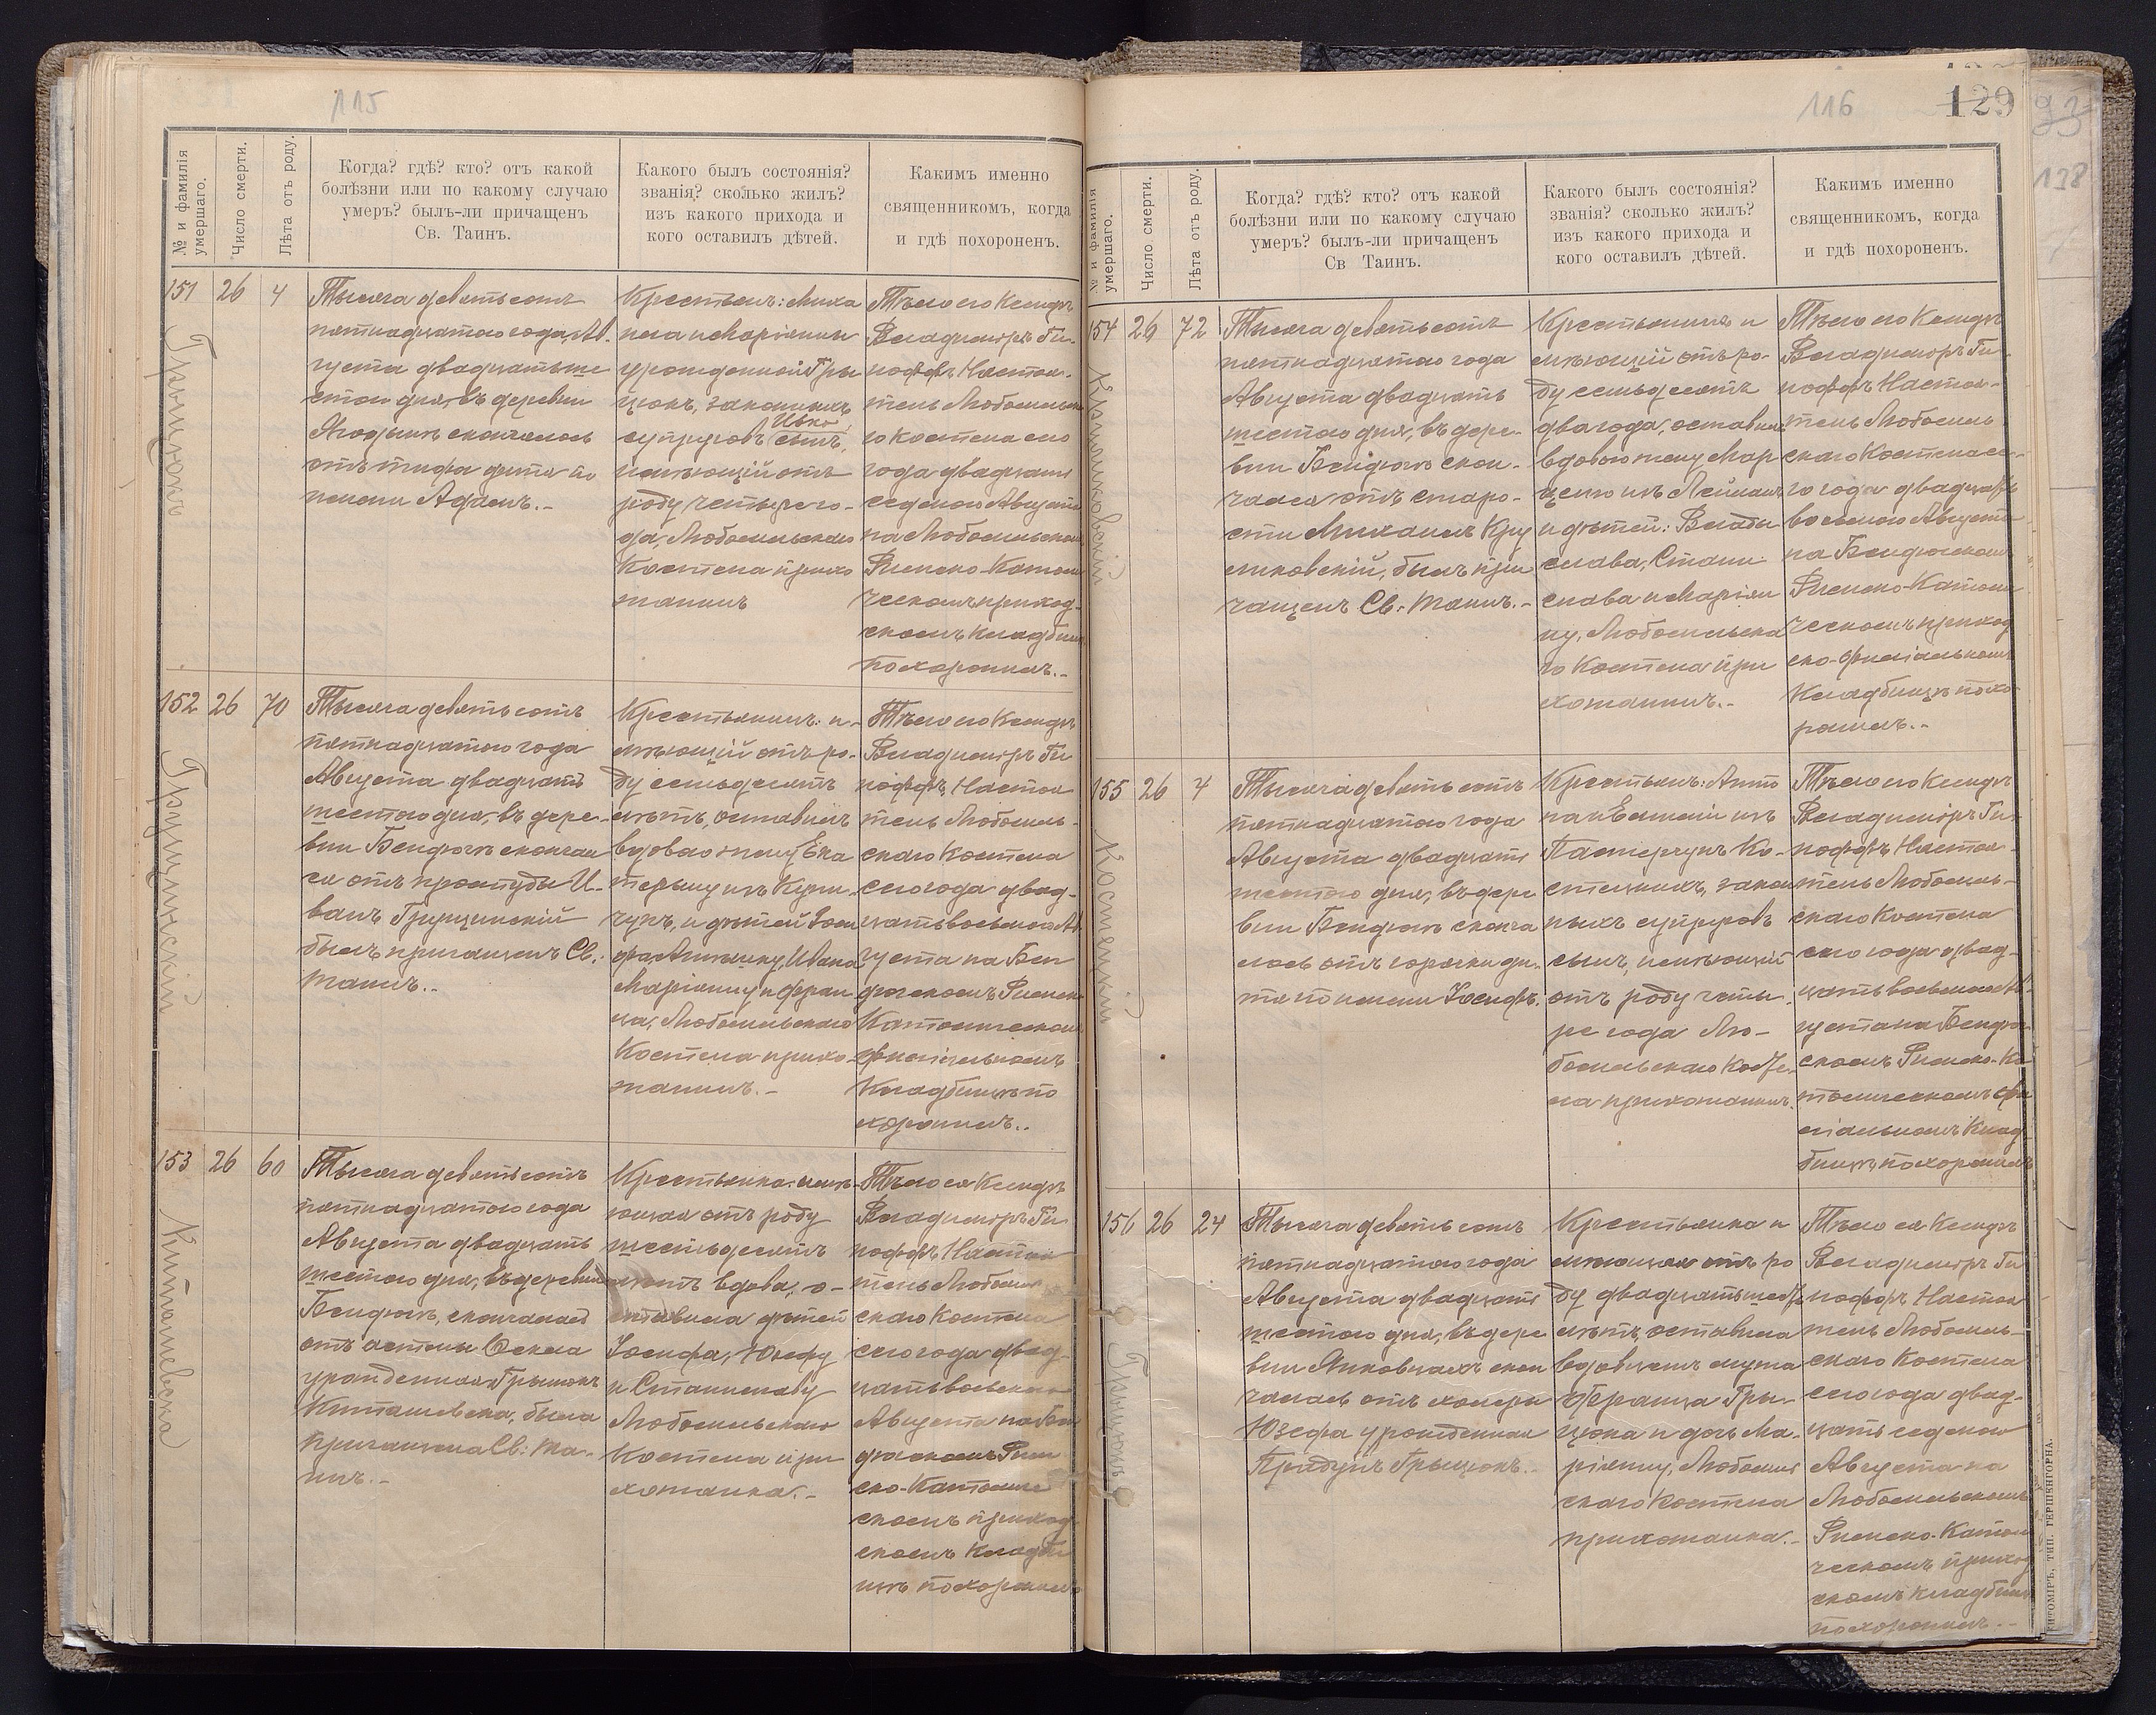 115
№ и фамилія умершаго.
Число смерти.
Лѣта отъ роду.
Когда? гдѣ? кто? отъ какой
болѣзни или по какому случаю
умеръ? былъ-ли причащенъ
Св. Таинъ.
Какого былъ состоянія?
званія? сколько жилъ?
изъ какого прихода и
кого оставилъ дѣтей.
Какимъ именно
священникомъ, когда
и гдѣ похороненъ.
151
26
4
Тысяча девятьсотъ
пятнадцатого года, Ав-
густа двадцать ше
стого дня, въ деревни
Ягодынъ скончалось
отъ тифа дитя по
имени Адамъ.-
Крестьянъ: Миха
ила и Маріянны
урожденной Гры
цюкъ, законныхъ
супруговъ сынъ,
имѣющій отъ
роду четыре го-
да, Любомльскаго
Костела прихо
жанинъ
Тѣло его Ксендзъ
Владиміръ Ги-
поффъ Настоя-
тель Любомльска
го Костела сего
года двадцать
седмого Августа
на Любомльскомъ
Римско-Католи
ческомъ приход-
скомъ кладбищѣ
похоронилъ.-
152
26
70
Грущинскій
Тысяча девятьсотъ
пятнадцатого года
Августа двадцать
шестого дня, въ дере-
вни Бендюгъ скончал
ся отъ простуды И-
ванъ Грущинскій
былъ причащенъ Св.
Таинъ.-
Крестьянинъ: и-
мѣющій отъ ро-
ду семьдесятъ
лѣтъ, оставилъ
вдовою жену Ека
терину изъ
и дѣтей Іоси
фа, Ивана
Маріянну и Фран
ца, Любомльскаго
Костела прихо-
жанинъ.-
Тѣло его Ксендзъ
Владиміръ Ги
поффъ, Настоя
тель Любомль-
скаго Костела
сего года двад-
цать восьмого Ав
густа на Бен
дюгскомъ Римско
Католическомъ
филіальномъ
Кладбищѣ по
хоронилъ..
153
26
60
Киташевска
Тысяча девятьсотъ
пятнадцатого года
Августа двадцать
шестого дня, въ деревни
Бендюгъ, скончалась
отъ астмы Текла
урожденная Грыцюкъ
Киташевска, была
Причащена Св: Та-
инъ.-
Крестьянка: имѣ-
ющая отъ роду
шестьдесятъ
лѣтъ вдова, о-
ставила дѣтей
Іосифа, Юзефу
и Станиславу
Любомльскаго
Костела при
хожанка.-
Тѣло ея Ксендзъ
Владиміръ Ги
поффъ Настоя
тель Любомль
скаго Костела
сего года двад-
цать восьмого
Августа на Бен
дюгскомъ Рим
ско-Католиче
скомъ приход
скомъ кладби
щѣ похоронилъ
116
129
93
138
№ и фамилія умершаго.
Число смерти.
Лѣта отъ роду.
Когда? гдѣ? кто? отъ какой
болѣзни или по какому случаю
умеръ? былъ-ли причащенъ
Св Таинъ.
Какого былъ состоянія?
званія? сколько жилъ?
изъ какого прихода и
кого оставилъ дѣтей.
Какимъ именно
священникомъ, когда
и гдѣ похороненъ.
154
26
72
Тысяча девятьсотъ
пятнадцатого года
Августа двадцать
шестого дня, въ дере-
вни Бендюгъ скон-
чался отъ старо-
сти Михаилъ Кру
сликовскій, былъ при
чащенъ Св. Таинъ.-
Крестьянинъ и
мѣющій отъ ро-
ду семьдесятъ
два года, оставилъ
вдовою жену Мар
и дѣтей: Влады
слава, Стани
слава и Маріян
ну, Любомльска
го Костела при
хожанинъ.-
Тѣло его Ксендзъ
Владиміръ Ги-
поффъ Настоя-
тель Любомль
скаго Костела се-
го года двадцать
восьмого Августа
на Бендюгскомъ
Римско-Католи
ческомъ приход
ско-филіальномъ
Кладбищѣ похо-
ронилъ.-
155
26
4
Костецкій
Тысяча девятьсотъ
пятнадцатого года
Августа двадцать
шестого дня, въ дере
вни Бендюгъ сконча
лось отъ горячки ди-
тя по имени Іосифъ.
Крестьянъ: Анто
на и
Ко-
стецкихъ, закон
ныхъ супруговъ
сынъ, имѣющій
отъ роду четы-
ре года Лю-
бомльскаго Косте-
ла прихожанинъ.
Тѣло его Ксендзъ
Владиміръ Ги-
поффъ Настоя-
тель Любомль-
скаго Костела
сего года двад-
цать восьмого Ав-
густа на Бендюг-
скомъ Римско-Ка-
толическомъ фи
ліальномъ Клад-
бищѣ похоронилъ
156
26
24
Грыцюкъ
Тысяча девятьсотъ
пятнадцатого года
Августа двадцать
шестого дня, въ дере
вни Янковцахъ скон
чалась отъ холеры
Юзефа урожденная
Грыцюкъ.-
Крестьянка и
мѣющая отъ ро
ду двадцать
лѣтъ, оставила
вдовцемъ мужа
Франца Гры-
цюка и дочь Ма-
ріянну, Любомль
скаго Костела
прихожанка.-
Тѣло ея Ксендзъ
Владиміръ Ги
поффъ Настоя
тель Любомль-
скаго Костела
сего года двад-
цать седмого
Августа на
Любомльскомъ
Римско-Католи
ческомъ приход
скомъ кладбищѣ
похоронилъ.-
ТИП. ГЕРШЕНГОРНА.